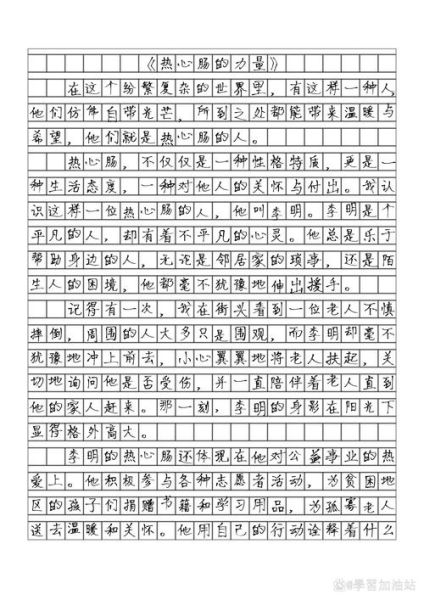 《热心肠的力量》
在这个纷繁复杂的世界里，有这样一种人，
他们仿佛自带光芒，所到之处都能带来温暖与
希望，他们就是热心肠的人。
热心肠，不仅仅是一种性格特质，更是一
种生活态度，一种对他人的关怀与付出。我认
识这样一位热心肠的人，他叫李明。李明是个
平凡的人，却有着不平凡的心灵。他总是乐于
帮助身边的人，无论是邻居家的琐事，还是陌
生人的困境，他都毫不犹豫地伸出援手。
记得有一次，我在街头看到一位老人不慎
摔倒，周围的人大多只是围观，而李明却毫不
犹豫地冲上前去，小心翼翼地将老人扶起，关
切地询问他是否受伤，并一直陪伴着老人直到
他的家人赶来。那一刻，李明的身影在阳光下
显得格外高大。
李明的热心肠还体现在他对公益事业的热
爱上。他积极参与各种志愿者活动，为贫困地
区的孩子们捐赠书籍和学习用品，为孤寡老人
送去温暖和关怀。他用自己的行动诠释着什么
學習加油站